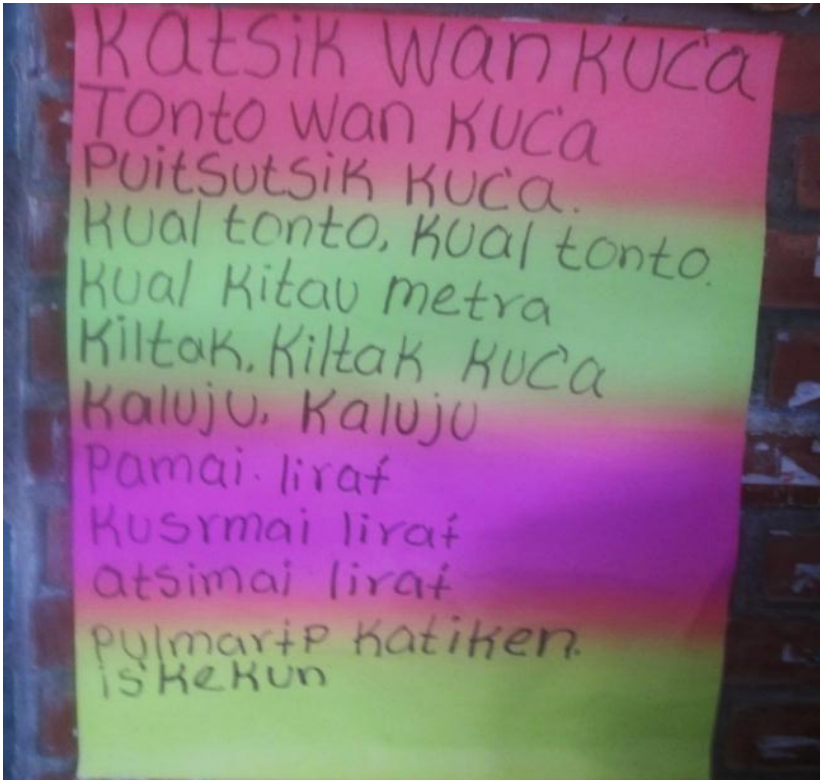 Katsik wan kuċa
Tonto wan kuċa
Puitsutsik kuċa.
kual tonto, kual tonto.
kual kitau metra
kiltak, kiltak kuċa
kaluju, kaluju
pamai. liraɨ
kusrmai liraɨ
atsimai liraɨ
pylmarɨp katiken.
is kekun